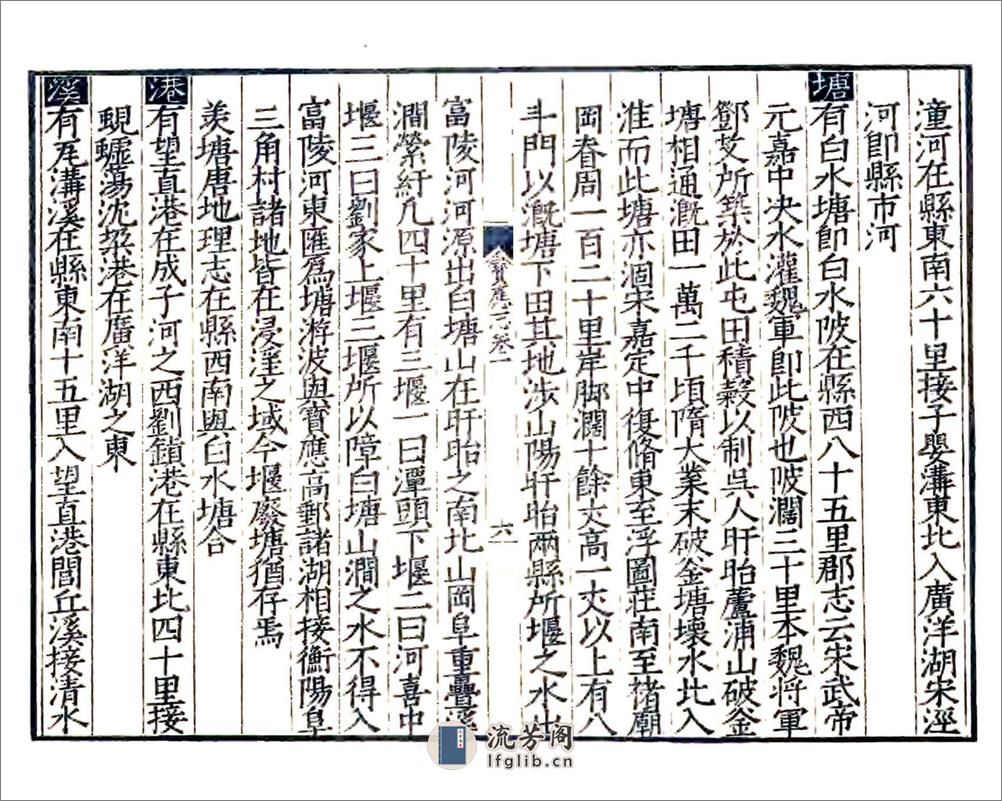 潼河在縣東南六十里接子嬰溝東北入廣洋湖宋涇
河卽縣市河
塘有白水塘卽白水陂在縣西八十五里郡志云宋武帝
元嘉中决水灌魏軍卽此陂也陂濶三十里本魏將軍
鄧艾所築於此屯田積穀以制吳人盱眙蘆浦山破釜
塘相通漑田一萬二千頃隋大業末破釜塘壞水北入
淮而此塘亦涸宋嘉定中復脩東至浮圖莊南至褚廟
岡眷周一百二十里岸脚濶十餘丈高一丈以上有八
斗門以漑塘下田其地涉山陽盱眙兩縣所堰之水出
寶應志卷一
六
富陵河河源出白塘山在盱眙之南北山岡阜重疊溪
澗縈紆凡四十里有三堰一曰潭頭下堰二曰河喜中
堰三曰劉家上堰三堰所以障白塘山澗之水不得入
富陵河東匯爲塘游波與寶應高郵諸湖相接衡陽阜
三角村諸地皆在浸滛之域今堰廢塘猶存焉
羡塘唐地理志在縣西南與白水塘合
港有望直港在成子河之西劉鎮港在縣東北四十里接
蜆蠦蕩沈垜港在廣洋湖之東
溪有瓦溝溪在縣東南十五里入望直港閭丘溪接清水
流芳阁
lfglib.cn